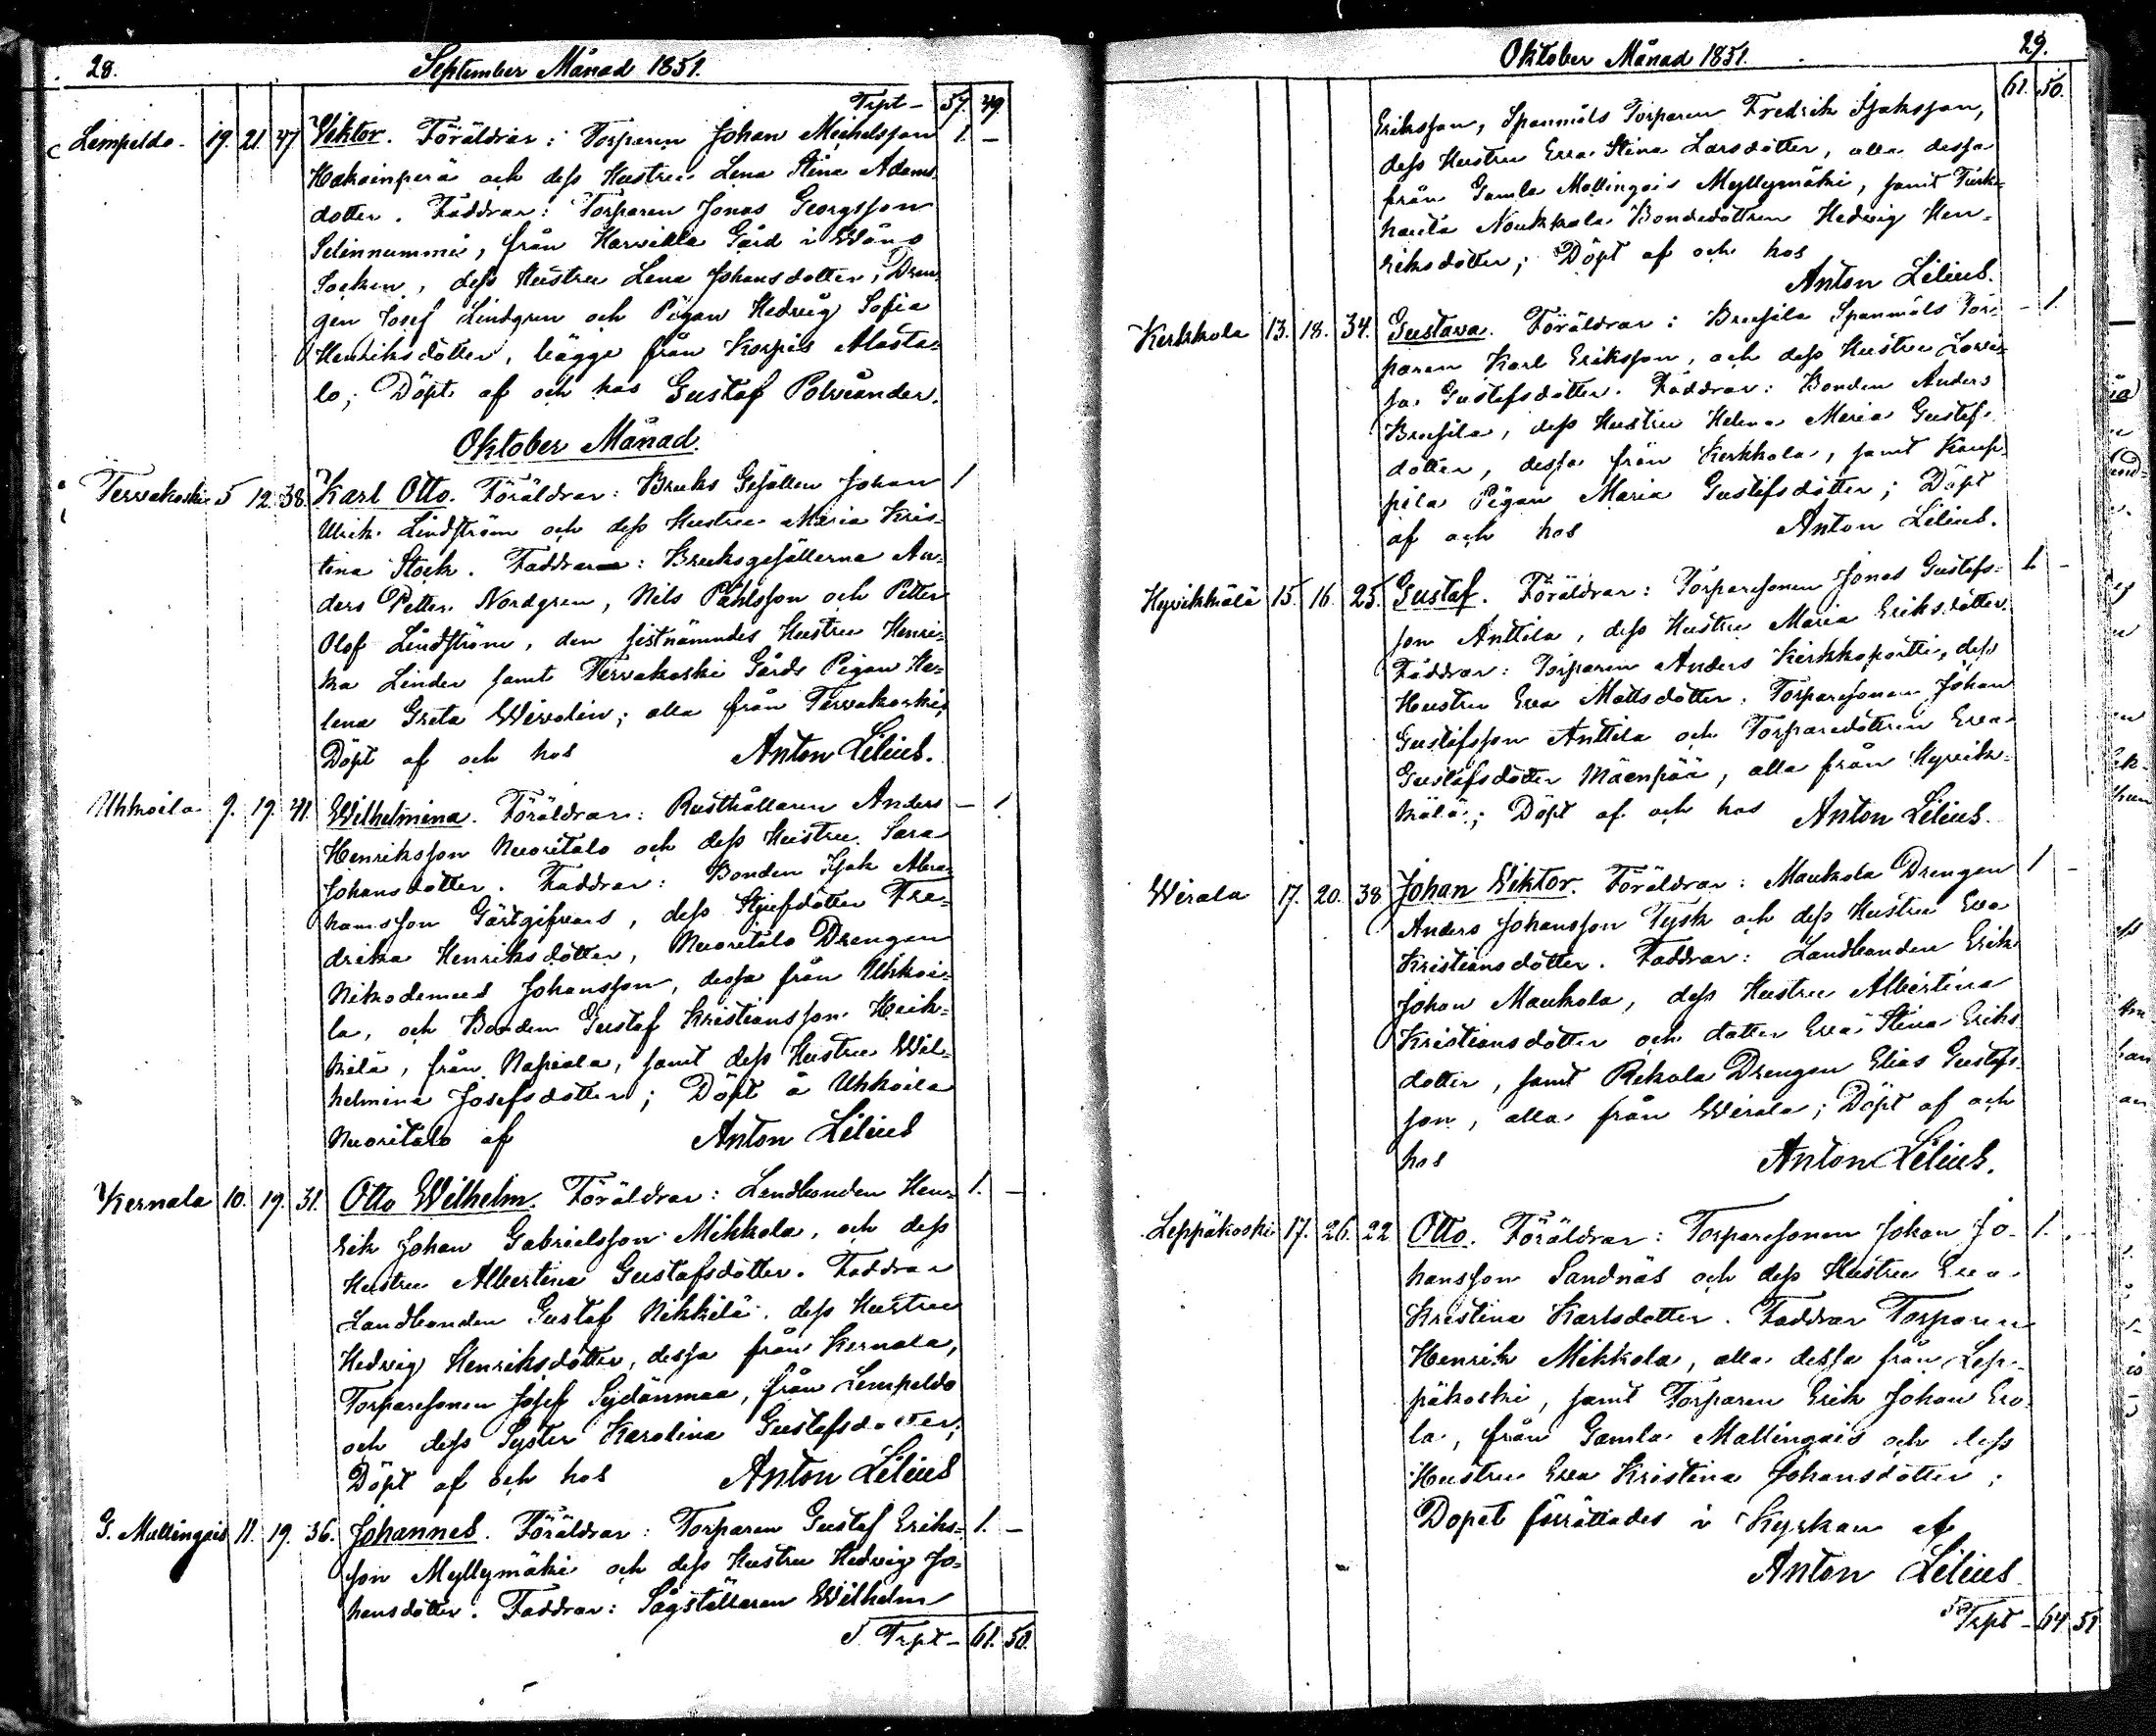 28.
September Månad 1851.
Trpt - 57. 49.
Lempeldo. 19. 21. 47 Viktor. Föräldrar: Torparen Johan Michelsson 1. -
Hakoinperä och dess Hustru Lena Stina Adams
dotter. Faddrar: Torparen Jonas Georgsson
Selinnummi, från Harvilla Gård i Wånå
Socken, dess Hustru Lena Johansdotter, Dren
gen Josef Lindgren och Pigan Hedvig Sofia
Henriksdotter, bägge från Korpis Alasta=
lo; Döpt af och hos Gustaf Polviander.
Oktober Månad.
Tervakoski 5 12. 38. Karl Otto. Föräldrar: Bruks Gesällen Johan 1
Ulrik Lindström och dess Hustru Maria Kris=
tina Stock. Faddrar: Bruksgesällerna An=
ders Petter Nordgren, Nils Påhlsson och Petter
Olof Lindström, den sistnämndes Hustru Henri=
ka Linder samt Tervakoski Gårds Pigan He=
lena Greta Wirolin; alla från Tervakoski,
Döpt af och hos Anton Lilius.
Uhkoila 9. 19. 41. Wilhelmina. Föräldrar: Rusthållaren Anders - 1
Henriksson Nuoritalo och dess Hustru Sara
Johansdotter. Faddrar: Bonden Isak Abra=
hamsson Gästgifvars, dess Styfdotter Fre=
drika Henriksdotter, Nuoritalo Drengen
Nikodemus Johansson, dessa från Uhkoi=
la, och Bonden Gustaf Kristiansson Heik=
kilä, från Napiala, samt dess Hustru Wil=
helmina Josefsdotter; Döpt å Uhkoila
Nuoritalo af Anton Lilius
Kernala 10. 19. 31. Otto Wilhelm. Föräldrar: Landbonden Hen= 1. -
rik Johan Gabrielsson Mikkola, och dess
Hustru Albertina Gustafsdotter. Faddrar
Landbonden Gustaf Nikkilä, dess Hustru
Hedvig Henriksdotter, dessa från Kernala,
Torparesonen Josef Sydänmaa, från Lempeldo
och dess Syster Karolina Gustafsdotter;
Döpt af och hos Anton Lilius
G. Mallingais 11. 19. 36. Johannes. Föräldrar: Torparen Gustaf Eriks= 1. -
son Myllymäki och dess Hustru Hedvig Jo=
hansdotter. Faddrar: Sågställaren Wilhelm
Trpt - 61. 50.
Oktober Månad 1851.
29.
61. 50.
Eriksson, Spanmåls Torparen Fredrik Isaksson,
dess Hustru Eva Stina Larsdotter, alla dessa
från Gamla Mallingais Myllymäki, samt Turk=
hauta Noukkala Bondedottren Hedvig Hen=
riksdotter; Döpt af och hos
Anton Lilius.
Kerkkola 13. 18. 34. Gustava. Föräldrar: Brusila Spanmåls Tor= - 1.
paren Karl Eriksson, och dess Hustru Lovi=
sa Gustafsdotter. Faddrar: Bonden Anders
Brusila, dess Hustru Helena Maria Gustafs
dotter, dessa från Kerkkola, samt Kaup=
pila Pigan Maria Gustafsdotter; Döpt
af och hos Anton Lilius.
Hyvikkälä 15. 16. 25. Gustaf. Föräldrar: Torparesonen Jonas Gustafs= 1. -
son Anttila, dess Hustru Maria Eriksdotter.
Faddrar: Torparen Anders Kirkkoportti, dess
Hustru Eva Mattsdotter. Torparesonen Johan
Gustafsson Anttila och Torparedottren Eva
Gustafsdotter Mäenpää, alla från Hyvik=
kälä; Döpt af och hos Anton Lilius.
Wirala 17. 20. 38 Johan Viktor. Föräldrar: Maukola Drengen 1 -
Anders Johansson Tysk och dess Hustru Eva
Kristiansdotter. Faddrar: Landbonden Erik
Johan Maukola, dess Hustru Albertina
Kristiansdotter och dotter Eva Stina Eriks
dotter, samt Rekola Drengen Elias Gustafs
son, alla från Wirala; Döpt af och
hos Anton Lilius.
Leppäkoski 17. 26. 22 Otto. Föräldrar: Torparesonen Johan Jo- 1. -
hansson Sandnäs och dess Hustru Eva
Kristina Karlsdotter. Faddrar Torparen
Henrik Mikkola, alla dessa från Lep=
päkoski, samt Torparen Erik Johan Ero
la, från Gamla Mallingais och dess
Hustru Eva Kristina Johansdotter;
Dopet förrättades i Kyrkan af
Anton Lilius
Trpt - 64. 51